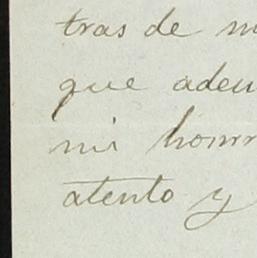 tras de m
que adeu
mi honr
atento y